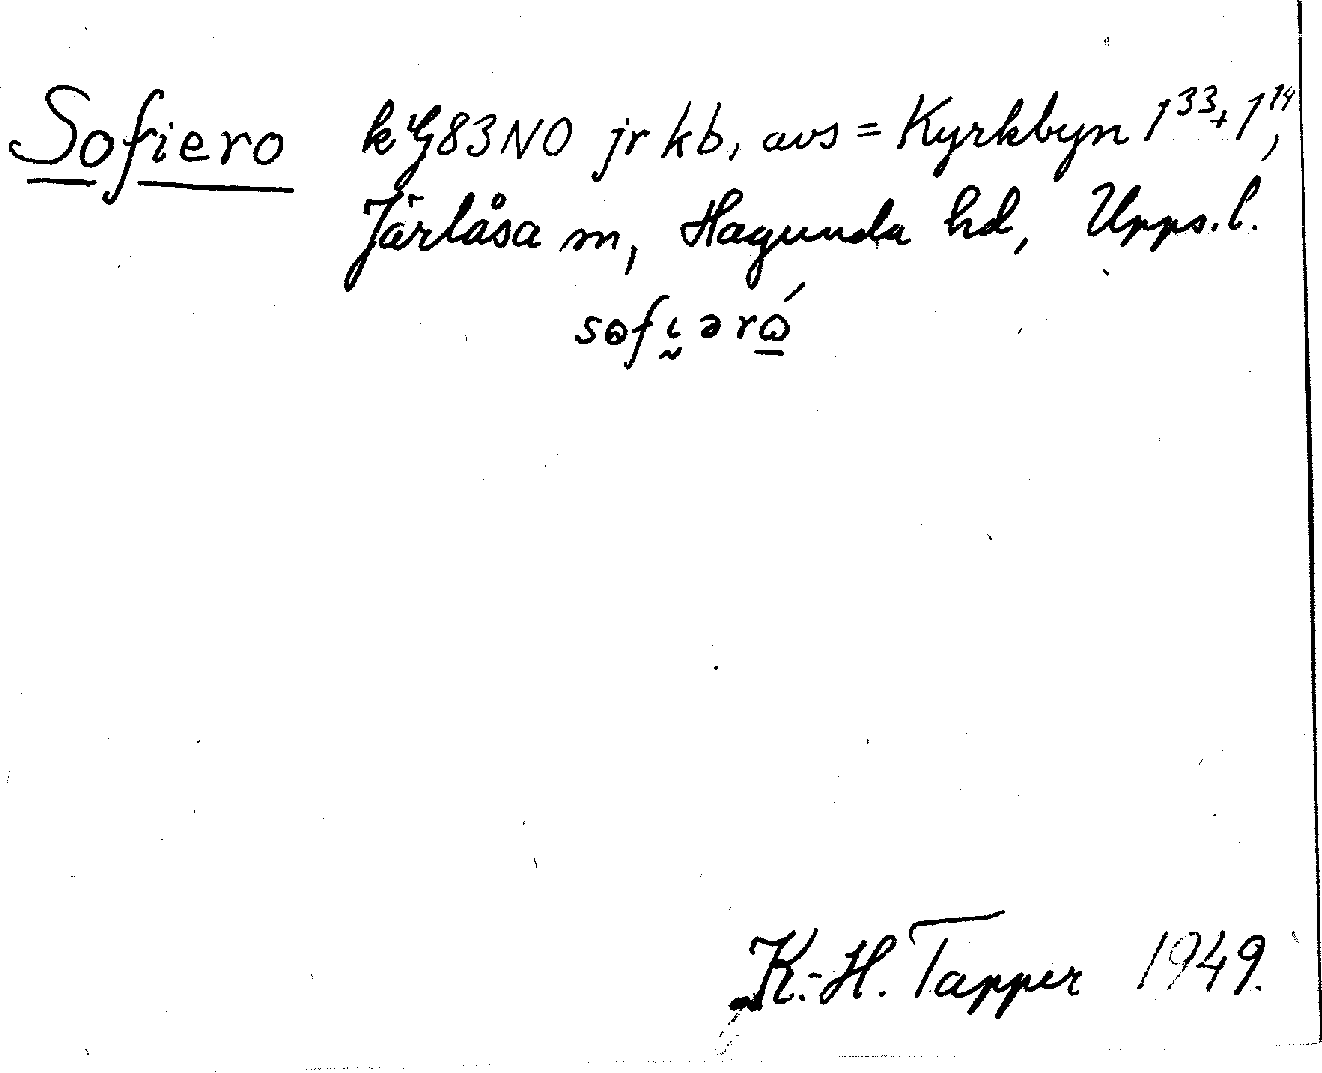 Sofiero k G83NO jr kb, avs = Kyrkbyn 1³³+1¹⁴,
Järlåsa sn, Hagunda hd, Upps. l.
sɷfi̯ərɷ́
K.-H. Tapper 1949.